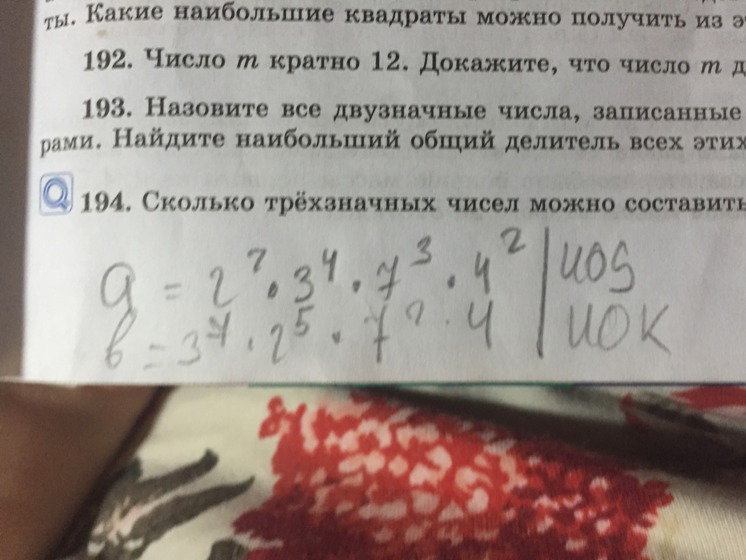 ты. Какие наибольшие квадраты можно получить из э
192. Число m кратно 12. Докажите, что число m д
193. Назовите все двузначные числа, записанные
рами. Найдите наибольший общий делитель всех этих
194. Сколько трёхзначных чисел можно составить
a = 2⁷ · 3⁴ · 7³ · 4² | НОД
b = 3⁴ · 2⁵ · 7² · 4 | НОК